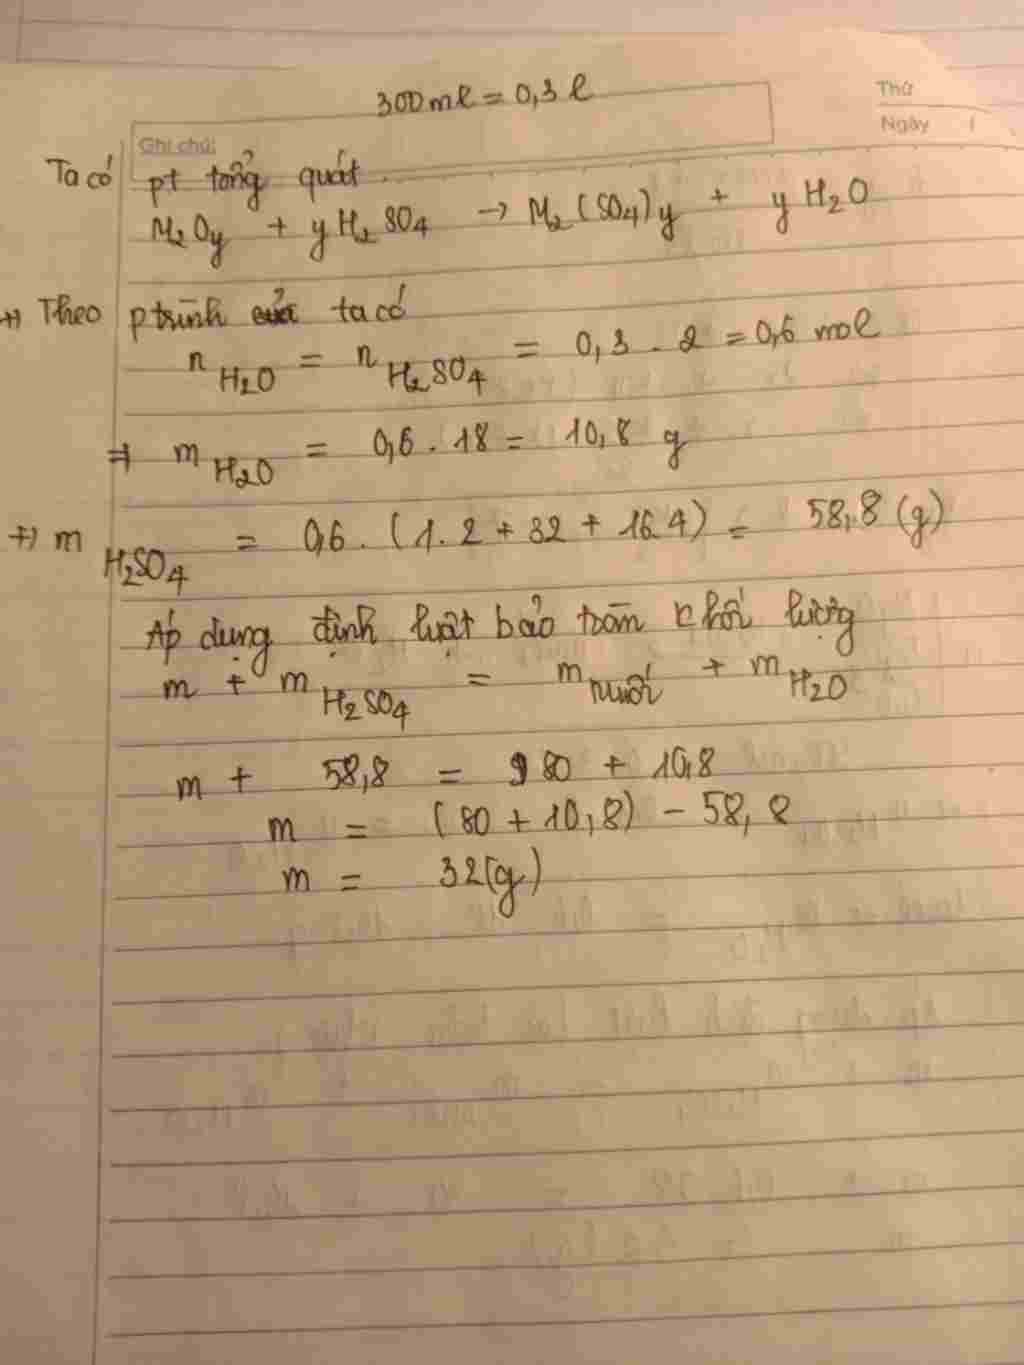 300ml = 0,3 l
Thứ
Ngày /
Ghi chú:
Ta có pt tổng quát
M₂Oy + y H₂SO₄ → M₂(SO₄)y + y H₂O
+) Theo ptrình ta có
n H₂O = n H₂SO₄ = 0,3 . 2 = 0,6 mol
⇒ m H₂O = 0,6 . 18 = 10,8 g
+) m H₂SO₄ = 0,6 . (1.2 + 32 + 16.4) = 58,8 (g)
Áp dụng định luật bảo toàn khối lượng
m + m H₂SO₄ = m muối + m H₂O
m + 58,8 = 80 + 10,8
m = (80 + 10,8) - 58,8
m = 32(g)